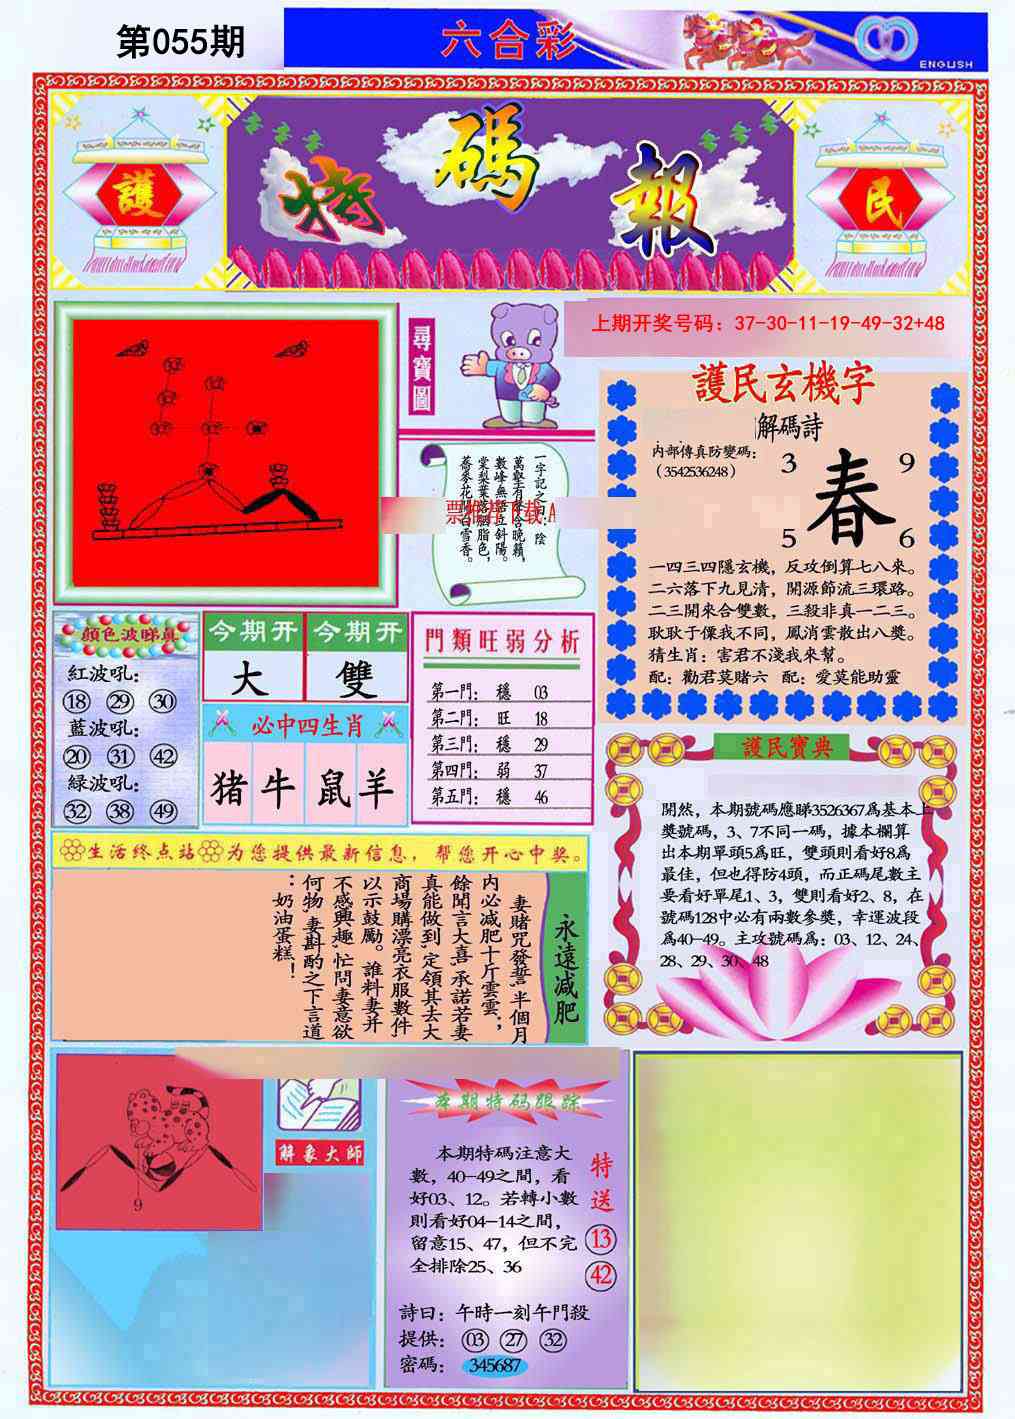 第055期
六合彩
ENGLISH
護
特碼報
民
尋寶圖
上期开奖号码：37-30-11-19-49-32+48
護民玄機字
解碼詩
内部傳真防變碼：
（3542536248）
3
9
春
5
6
一四三四隱玄機，反攻倒算七八來。
二六落下九見清，開源節流三環路。
二三開來合雙數，三殺非真一二三。
耿耿于懷我不同，鳳消雲散出八獎。
猜生肖：害君不淺我來幫。
配：勸君莫賭六 配：愛莫能助靈
一字記之曰：陰
數峰無語立斜陽。
棠梨葉落胭脂色，
蕎麥花開白雪香。
顏色波睇真
紅波吼：
18 29 30
藍波吼：
20 31 42
緑波吼：
32 38 49
今期开 今期开
大 雙
必中四生肖
猪 牛 鼠 羊
門類旺弱分析
第一門： 穩 03
第二門： 旺 18
第三門： 穩 29
第四門： 弱 37
第五門： 穩 46
護民寶典
開然，本期號碼應睇3526367爲基本上
獎號碼，3、7不同一碼，據本欄算
出本期單頭5爲旺，雙頭則看好8爲
最佳，但也得防4頭，而正碼尾數主
要看好單尾1、3，雙則看好2、8，在
號碼128中必有兩數參獎，幸運波段
爲40-49。主攻號碼爲：03、12、24、
28、29、30、48
生活终点站 为您提供最新信息，帮您开心中奖。
永遠减肥
妻賭咒發誓，半個月
内必减肥十斤雲雲；
餘聞言大喜，承諾若妻
真能做到，定領其去大
商場購漂亮衣服數件
以示鼓勵。誰料妻并
不感興趣，忙問妻意欲
何物，妻斟酌之下言道
：奶油蛋糕！
9
解象大師
本期特码跟踪
本期特碼注意大
數，40-49之間，看
好03、12。若轉小數
則看好04-14之間，
留意15、47，但不完
全排除25、36
特送
13
42
詩曰：午時一刻午門殺
提供：03 27 32
密碼：345687